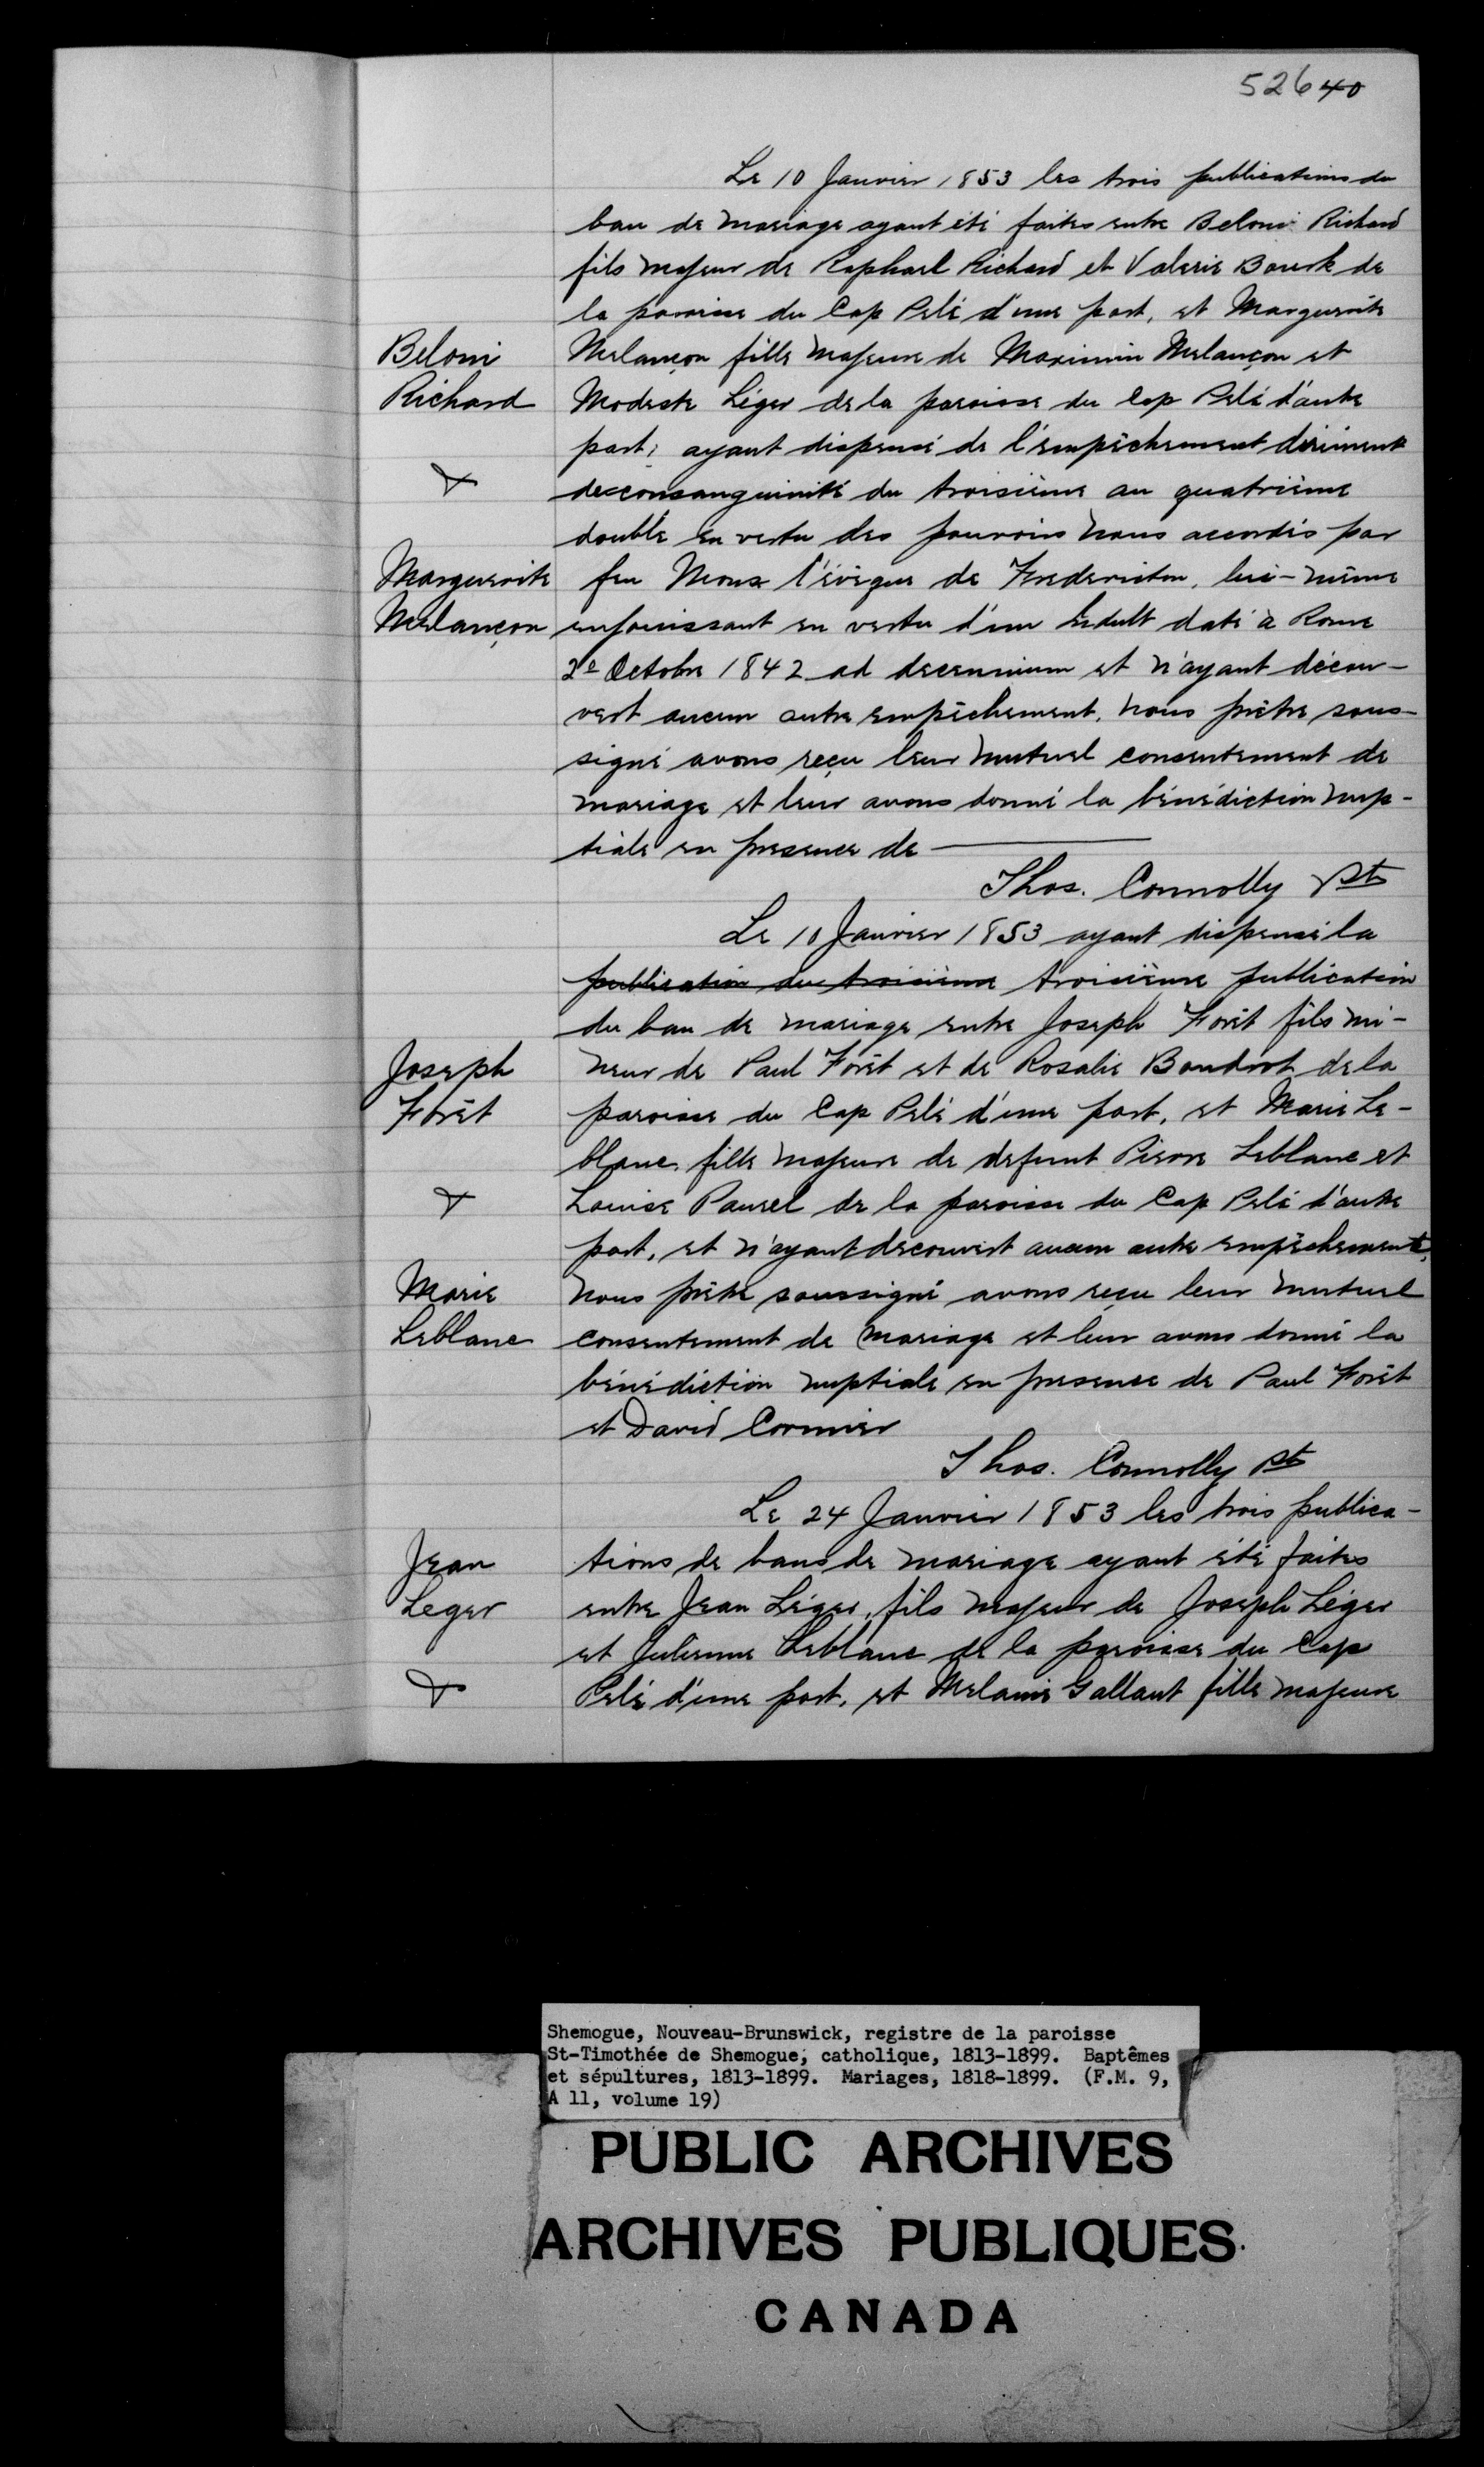 52640
Le 10 Janvier 1853 les trois publications du
ban de mariage ayant été faites entre Beloni Richard
fils majeur de Raphael Richard et Valerie Bourk de
la paroisse du Cap Pelé d'une part, et Marguerite
Beloni
Richard
&
Marguerite
Melançon
Melançon fille majeure de Maximin Melançon et
Modeste Léger de la paroisse du Cap Pelé d'autre
part; ayant dispensé de l'empêchement dirimant
de consanguinité du troisième au quatrième
double en vertu des pouvoirs nous accordés par
feu Monsr l'évêque de Fredericton, lui-même
en jouissant en vertu d'un Indult daté à Rome
2e Octobre 1842 ad decennium et n'ayant décou-
vert aucun autre empêchement, nous prêtre sous-
signé avons reçu leur mutuel consentement de
mariage et leur avons donné la bénédiction nup-
tiale en presence de
Thos. Connolly Pt
Le 10 Janvier 1853 ayant dispensé la
publication du troisième troisième publication
du ban de mariage entre Joseph Forêt fils mi-
Joseph
Forêt
&
Marie
Leblanc
neur de Paul Forêt et de Rosalie Boudrot de la
paroisse du Cap Pelé d'une part, et Marie Le-
blanc, fille majeure de defunt Pierre Leblanc et
Louise Paurel de la paroisse du Cap Pelé d'autre
part, et n'ayant decouvert aucun autre empêchement,
nous prêtre soussigné avons reçu leur mutuel
consentement de mariage et leur avons donné la
bénédiction nuptiale en presence de Paul Forêt
et David Cormier
Thos. Connolly Pt
Le 24 Janvier 1853 les trois publica-
Jean
Leger
&
tions de bans de mariage ayant été faites
entre Jean Léger, fils majeur de Joseph Léger
et Julienne Leblanc de la paroisse du Cap
Pelé d'une part, et Melanie Gallant fille majeure
Shemogue, Nouveau-Brunswick, registre de la paroisse
St-Timothée de Shemogue, catholique, 1813-1899. Baptêmes
et sépultures, 1813-1899. Mariages, 1818-1899. (F.M. 9,
A 11, volume 19)
PUBLIC ARCHIVES
ARCHIVES PUBLIQUES
CANADA